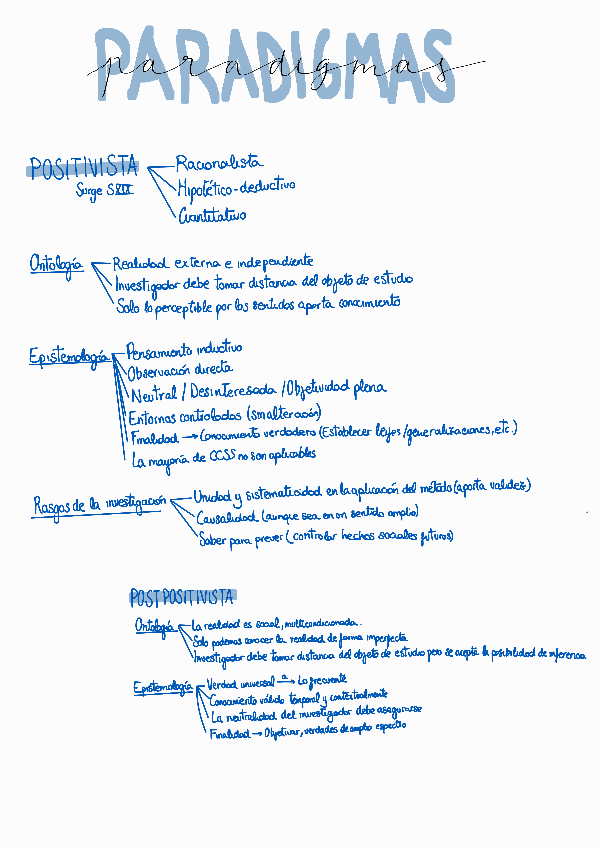 PARADIGMAS
paradigmas
POSITIVISTA
Surge SXIX
Racionalista
Hipotético-deductivo
Cuantitativo
Ontología
Realidad externa e independiente
Investigador debe tomar distancia del objeto de estudio
Solo lo perceptible por los sentidos aporta conocimiento
Epistemología
Pensamiento inductivo
Observación directa
Neutral / Desinteresada / Objetividad plena
Entornos controlados (sin alteración)
Finalidad → Conocimiento verdadero (Establecer leyes/generalizaciones, etc.)
La mayoría de CCSS no son aplicables
Rasgos de la investigación
Unidad y sistematicidad en la aplicación del método (aporta validez)
Causalidad (aunque sea en un sentido amplio)
Saber para prever (controlar hechos sociales futuros)
POSTPOSITIVISTA
Ontología
La realidad es social, multicondicionada.
Solo podemos conocer la realidad de forma imperfecta
Investigador debe tomar distancia del objeto de estudio pero se acepta la posibilidad de inferencia
Epistemología
Verdad universal a→ Lo frecuente
Conocimiento válido temporal y contextualmente
La neutralidad del investigador debe asegurarse
Finalidad → Objetivar, verdades de amplio espectro